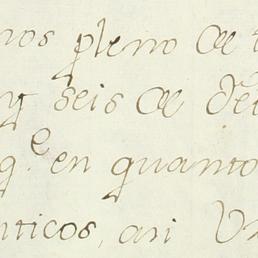 nos pleno de
y seis de
q.e en quanto
nticos, asi